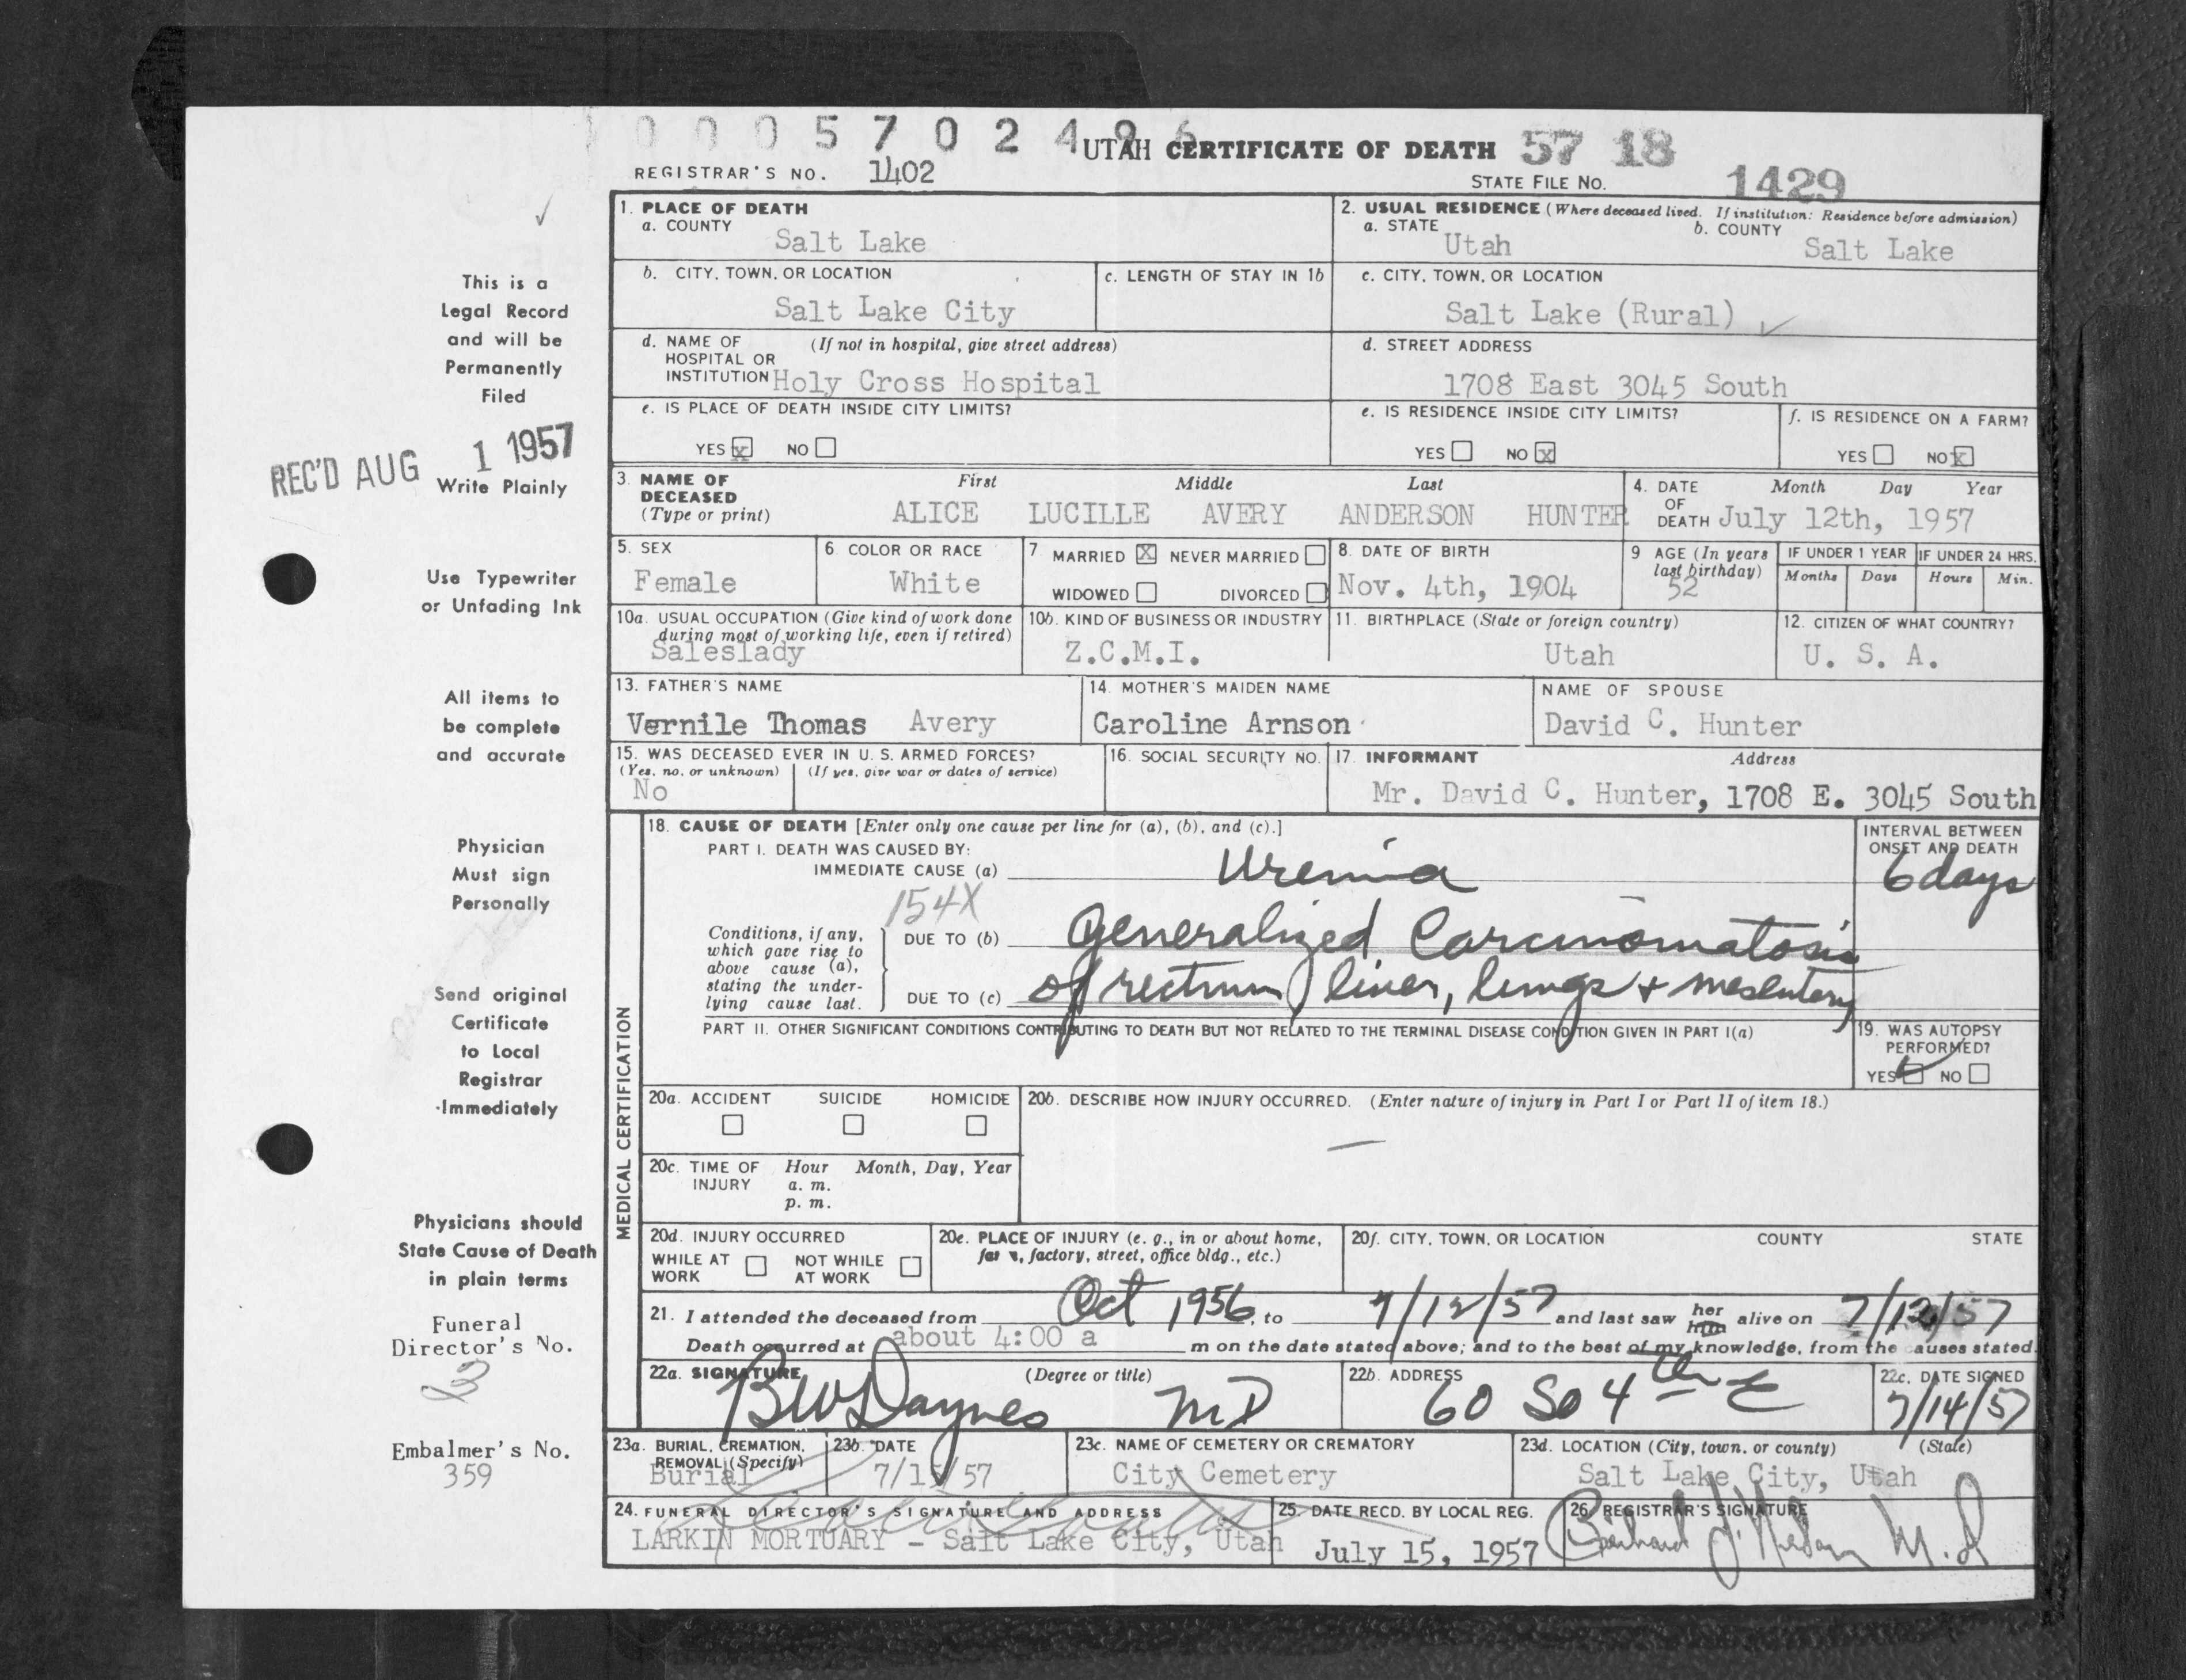 0 0 0 5 7 0 2 4 9 6 UTAH CERTIFICATE OF DEATH 57 18
REGISTRAR'S NO. 1402 STATE FILE NO. 1429
1. PLACE OF DEATH 2. USUAL RESIDENCE (Where deceased lived. If institution: Residence before admission)
a. COUNTY Salt Lake a. STATE Utah b. COUNTY Salt Lake
b. CITY, TOWN, OR LOCATION Salt Lake City c. LENGTH OF STAY IN 1b c. CITY, TOWN, OR LOCATION Salt Lake (Rural)
d. NAME OF HOSPITAL OR INSTITUTION (If not in hospital, give street address) Holy Cross Hospital d. STREET ADDRESS 1708 East 3045 South
e. IS PLACE OF DEATH INSIDE CITY LIMITS? e. IS RESIDENCE INSIDE CITY LIMITS? f. IS RESIDENCE ON A FARM?
YES X NO YES NO X YES NO X
3. NAME OF DECEASED (Type or print) First Middle Last
ALICE LUCILLE AVERY ANDERSON HUNTER
4. DATE OF DEATH Month Day Year July 12th, 1957
5. SEX Female 6. COLOR OR RACE White 7. MARRIED X NEVER MARRIED WIDOWED DIVORCED 8. DATE OF BIRTH Nov. 4th, 1904
9 AGE (In years last birthday) 52 IF UNDER 1 YEAR Months Days IF UNDER 24 HRS. Hours Min.
10a. USUAL OCCUPATION (Give kind of work done during most of working life, even if retired) Saleslady
10b. KIND OF BUSINESS OR INDUSTRY Z.C.M.I. 11. BIRTHPLACE (State or foreign country) Utah 12. CITIZEN OF WHAT COUNTRY? U. S. A.
13. FATHER'S NAME Vernile Thomas Avery 14. MOTHER'S MAIDEN NAME Caroline Arnson NAME OF SPOUSE David C. Hunter
15. WAS DECEASED EVER IN U. S. ARMED FORCES? (Yes, no, or unknown) (If yes, give war or dates of service) No
16. SOCIAL SECURITY NO. 17. INFORMANT Address Mr. David C. Hunter, 1708 E. 3045 South
MEDICAL CERTIFICATION
18. CAUSE OF DEATH [Enter only one cause per line for (a), (b), and (c).] INTERVAL BETWEEN ONSET AND DEATH
PART I. DEATH WAS CAUSED BY:
IMMEDIATE CAUSE (a) Uremia 6 days
154X
Conditions, if any, which gave rise to above cause (a), stating the underlying cause last.
DUE TO (b) Generalized Carcinomatosis
DUE TO (c) of rectum, liver, lungs + mesentery
PART II. OTHER SIGNIFICANT CONDITIONS CONTRIBUTING TO DEATH BUT NOT RELATED TO THE TERMINAL DISEASE CONDITION GIVEN IN PART I(a)
19. WAS AUTOPSY PERFORMED? YES NO
20a. ACCIDENT SUICIDE HOMICIDE 20b. DESCRIBE HOW INJURY OCCURRED. (Enter nature of injury in Part I or Part II of item 18.)
20c. TIME OF INJURY Hour Month, Day, Year
a. m.
p. m.
20d. INJURY OCCURRED WHILE AT WORK NOT WHILE AT WORK
20e. PLACE OF INJURY (e. g., in or about home, farm, factory, street, office bldg., etc.)
20f. CITY, TOWN, OR LOCATION COUNTY STATE
21. I attended the deceased from Oct 1956, to 7/12/57 and last saw her him alive on 7/12/57
Death occurred at about 4:00 a m on the date stated above; and to the best of my knowledge, from the causes stated.
22a. SIGNATURE (Degree or title) BW Daynes MD 22b. ADDRESS 60 So 4th E 22c. DATE SIGNED 7/14/57
23a. BURIAL, CREMATION, REMOVAL (Specify) Burial 23b. DATE 7/15/57 23c. NAME OF CEMETERY OR CREMATORY City Cemetery
23d. LOCATION (City, town, or county) (State) Salt Lake City, Utah
24. FUNERAL DIRECTOR'S SIGNATURE AND ADDRESS
LARKIN MORTUARY - Salt Lake City, Utah
25. DATE RECD. BY LOCAL REG. July 15, 1957
26. REGISTRAR'S SIGNATURE M.D
This is a
Legal Record
and will be
Permanently
Filed
REC'D AUG 1 1957
Write Plainly
Use Typewriter
or Unfading Ink
All items to
be complete
and accurate
Physician
Must sign
Personally
Send original
Certificate
to Local
Registrar
Immediately
Physicians should
State Cause of Death
in plain terms
Funeral
Director's No.
3
Embalmer's No.
359